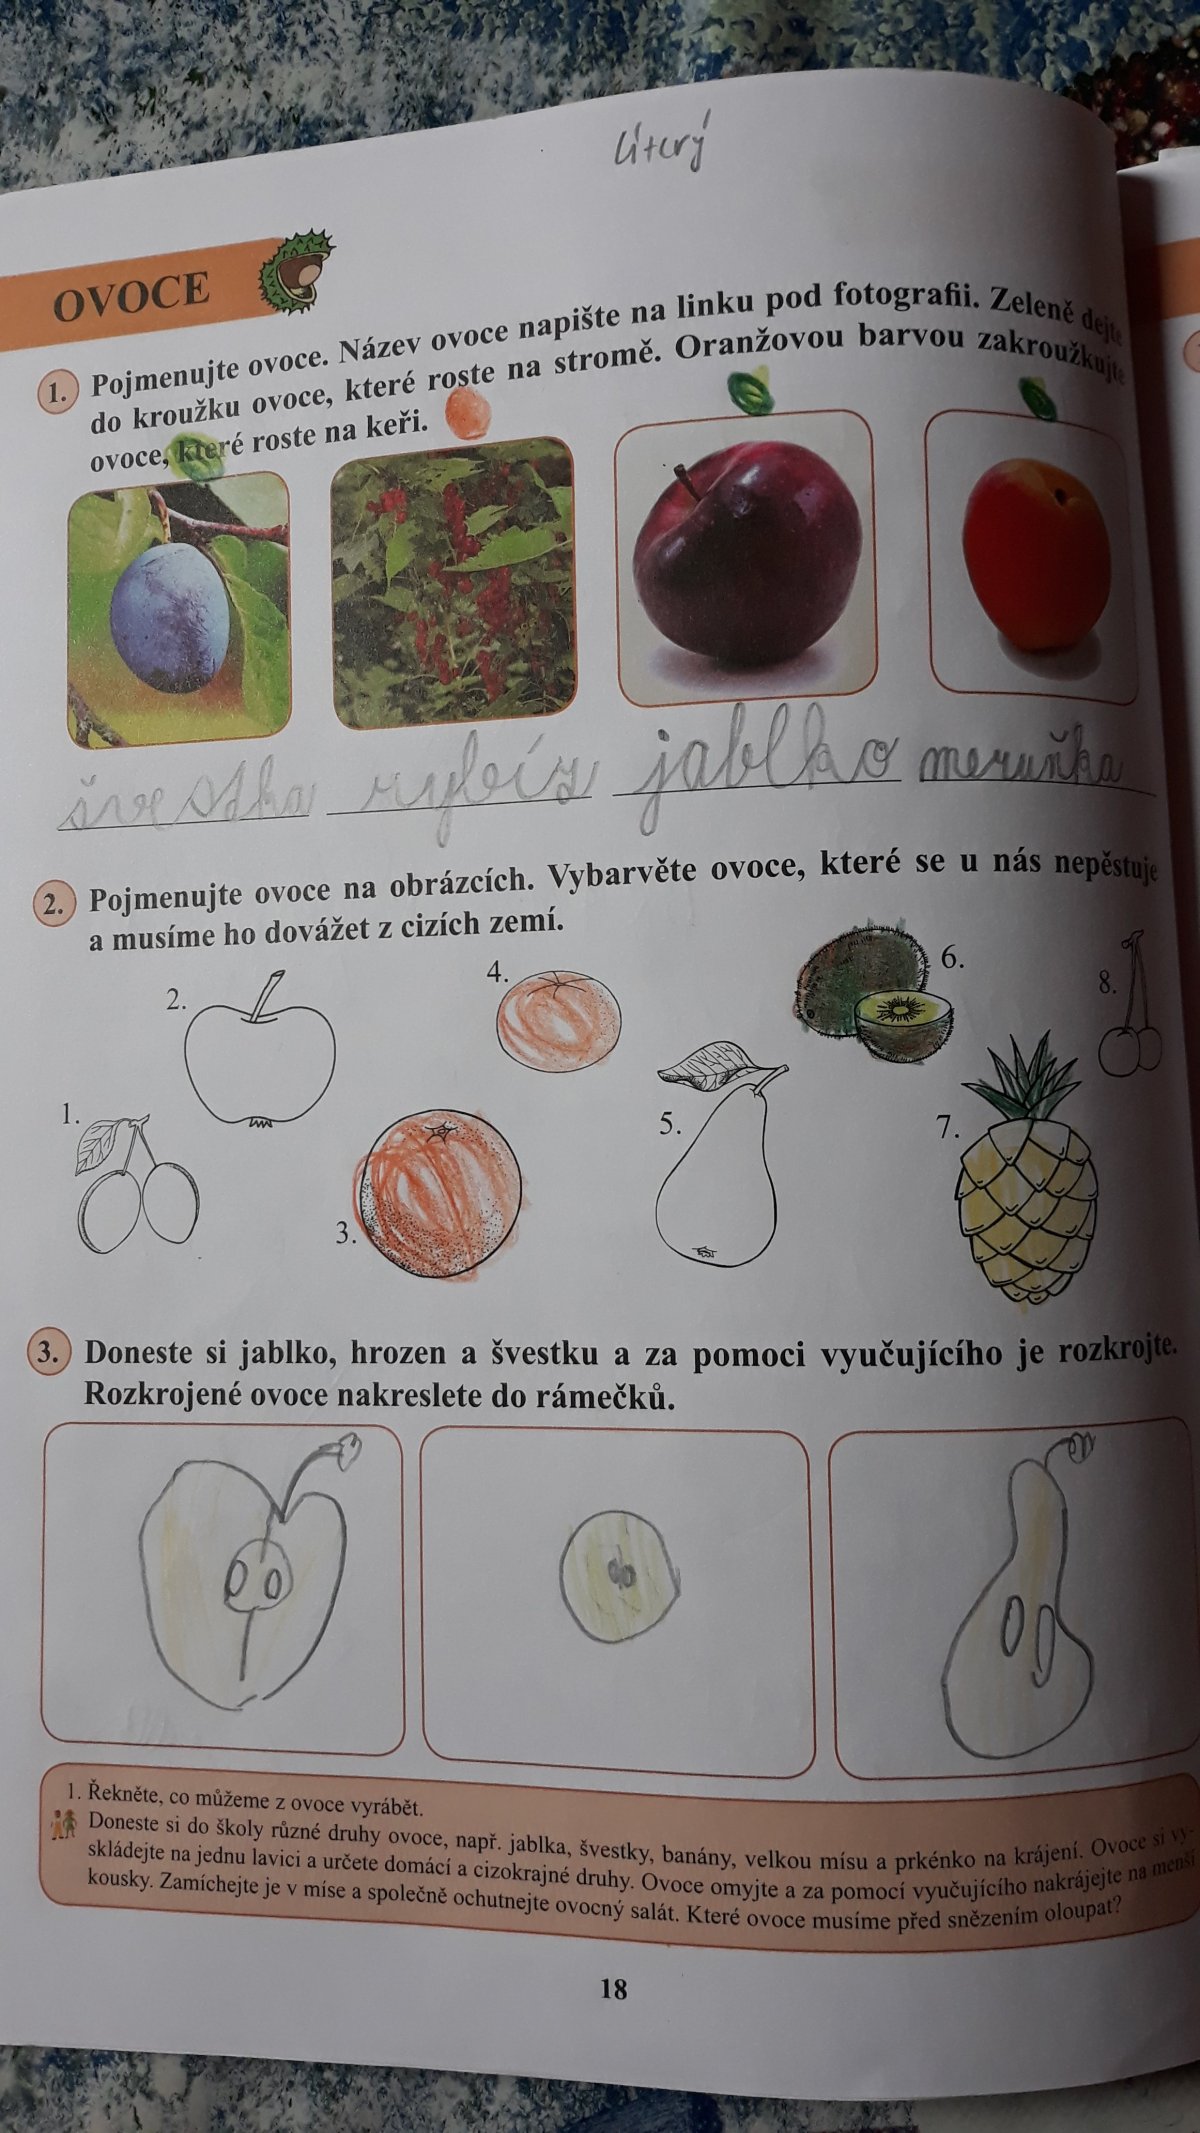 úterý
OVOCE
1. Pojmenujte ovoce. Název ovoce napište na linku pod fotografii. Zeleně dejte
do kroužku ovoce, které roste na stromě. Oranžovou barvou zakroužkujte
ovoce, které roste na keři.
švestka rybíz jablko meruňka
2. Pojmenujte ovoce na obrázcích. Vybarvěte ovoce, které se u nás nepěstuje
a musíme ho dovážet z cizích zemí.
1.
2.
3.
4.
5.
6.
7.
8.
3. Doneste si jablko, hrozen a švestku a za pomoci vyučujícího je rozkrojte.
Rozkrojené ovoce nakreslete do rámečků.
1. Řekněte, co můžeme z ovoce vyrábět.
Doneste si do školy různé druhy ovoce, např. jablka, švestky, banány, velkou mísu a prkénko na krájení. Ovoce si vy-
skládejte na jednu lavici a určete domácí a cizokrajné druhy. Ovoce omyjte a za pomocí vyučujícího nakrájejte na menší
kousky. Zamíchejte je v míse a společně ochutnejte ovocný salát. Které ovoce musíme před snězením oloupat?
18